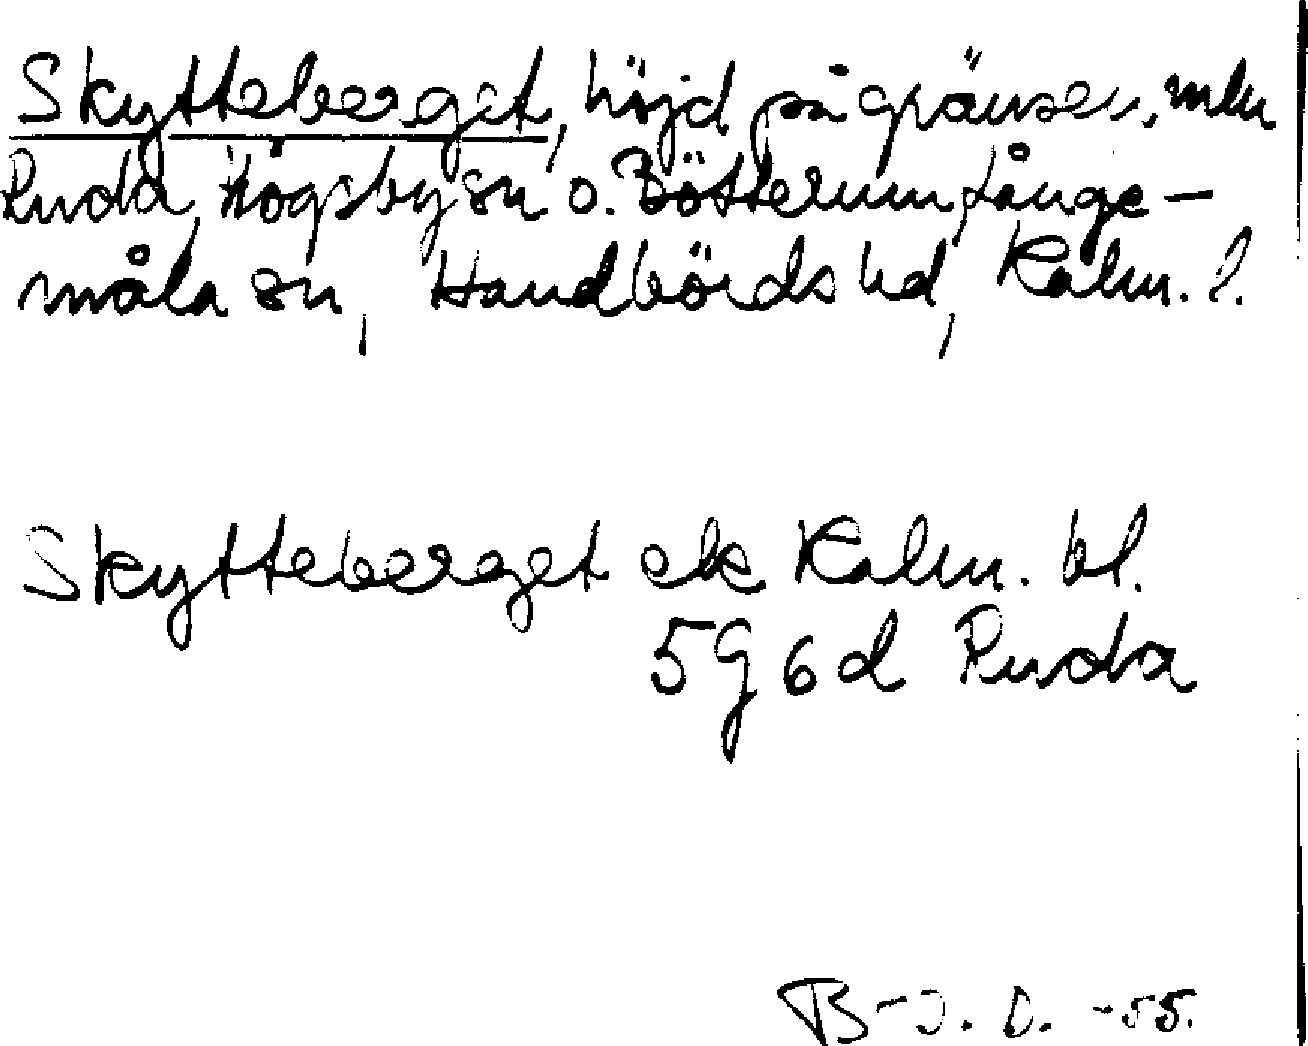 Skytteberget, höjd på gränsen mln
Ruda, Högsby sn o. Bötterum, Långe-
måla sn, Handbörds hd, Kalm. l.
Skytteberget ek Kalm. bl.
5G 6d Ruda
B-J. D. -55.